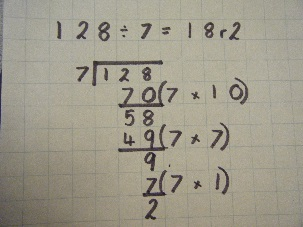 128 ÷ 7 = 18r2
7)128
70(7 × 10)
58
49(7 × 7)
9
7(7 × 1)
2